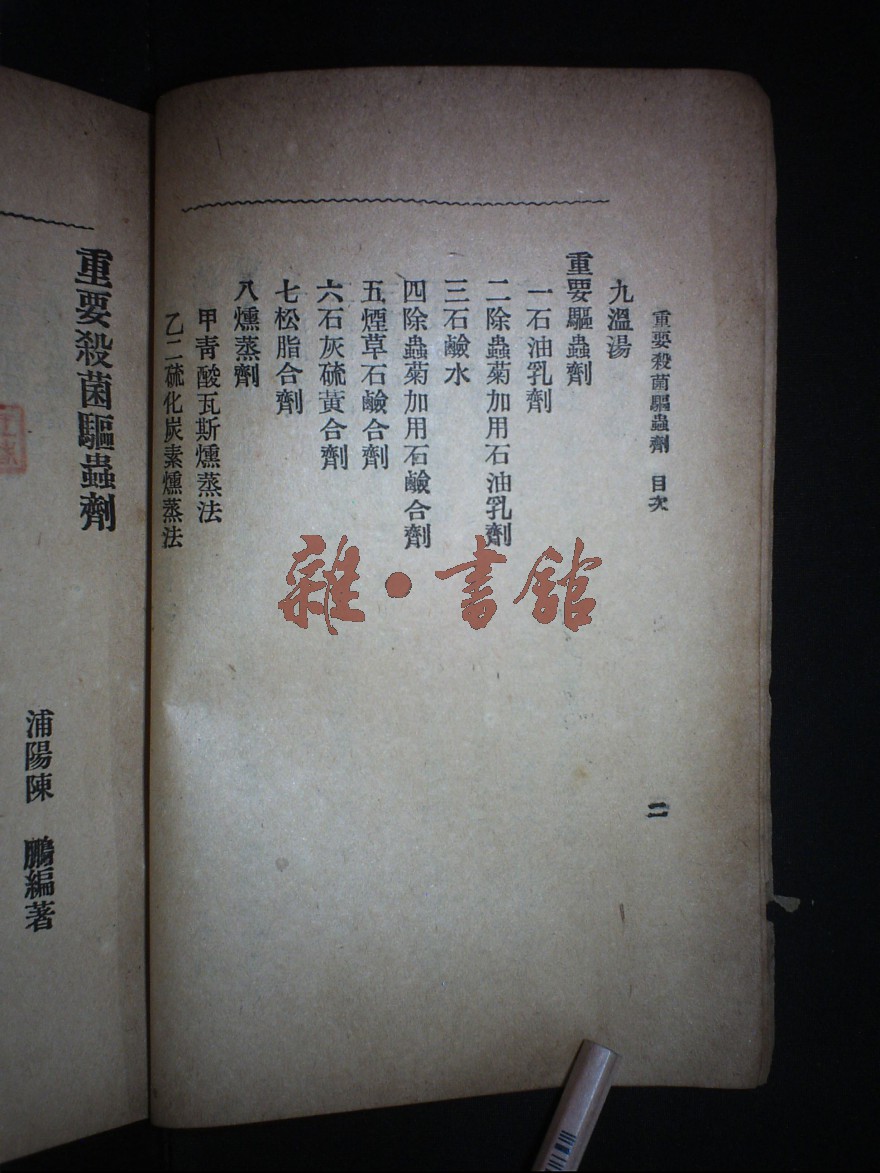 重要殺菌驅蟲劑 目次
二
九溫湯
重要驅蟲劑
一石油乳劑
二除蟲菊加用石油乳劑
三石鹼水
四除蟲菊加用石鹼合劑
五煙草石鹼合劑
六石灰硫黃合劑
七松脂合劑
八燻蒸劑
甲靑酸瓦斯燻蒸法
乙二硫化炭素燻蒸法
雜·書館
重要殺菌驅蟲劑
浦陽陳 鵬編著